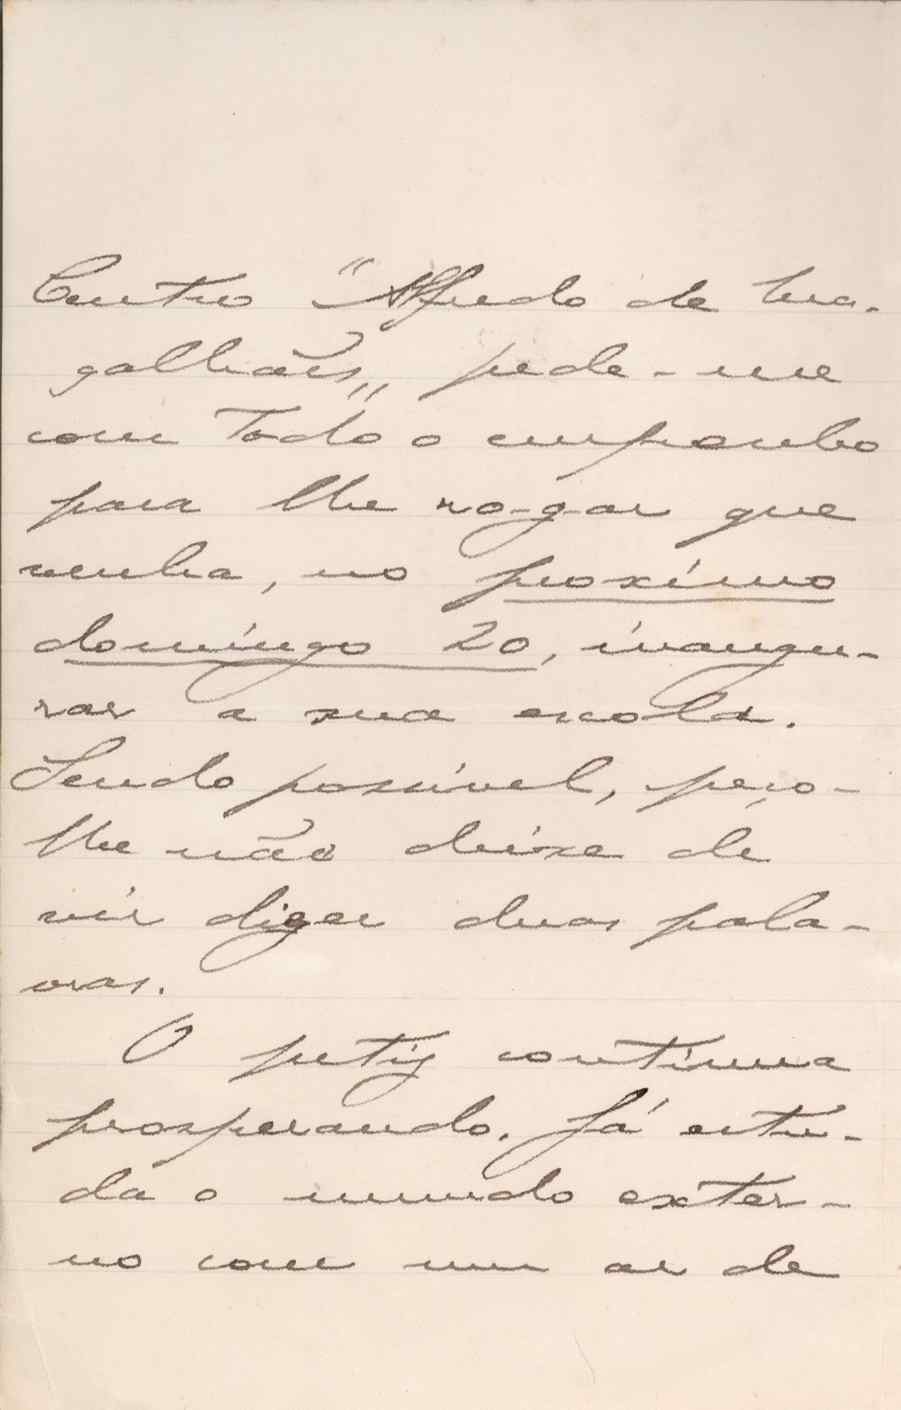 Centro "Alfredo de Ma-
galhães„ pede-me
com todo o empenho
para lhe rogar que
venha, no proximo
domingo 20, inaugu-
rar a sua escola.
Sendo possivel, peço-
lhe não deixe de
vir dizer duas pala-
vras.
O petiz continua
prosperando. Já estu-
da o mundo exter-
no com um ar de